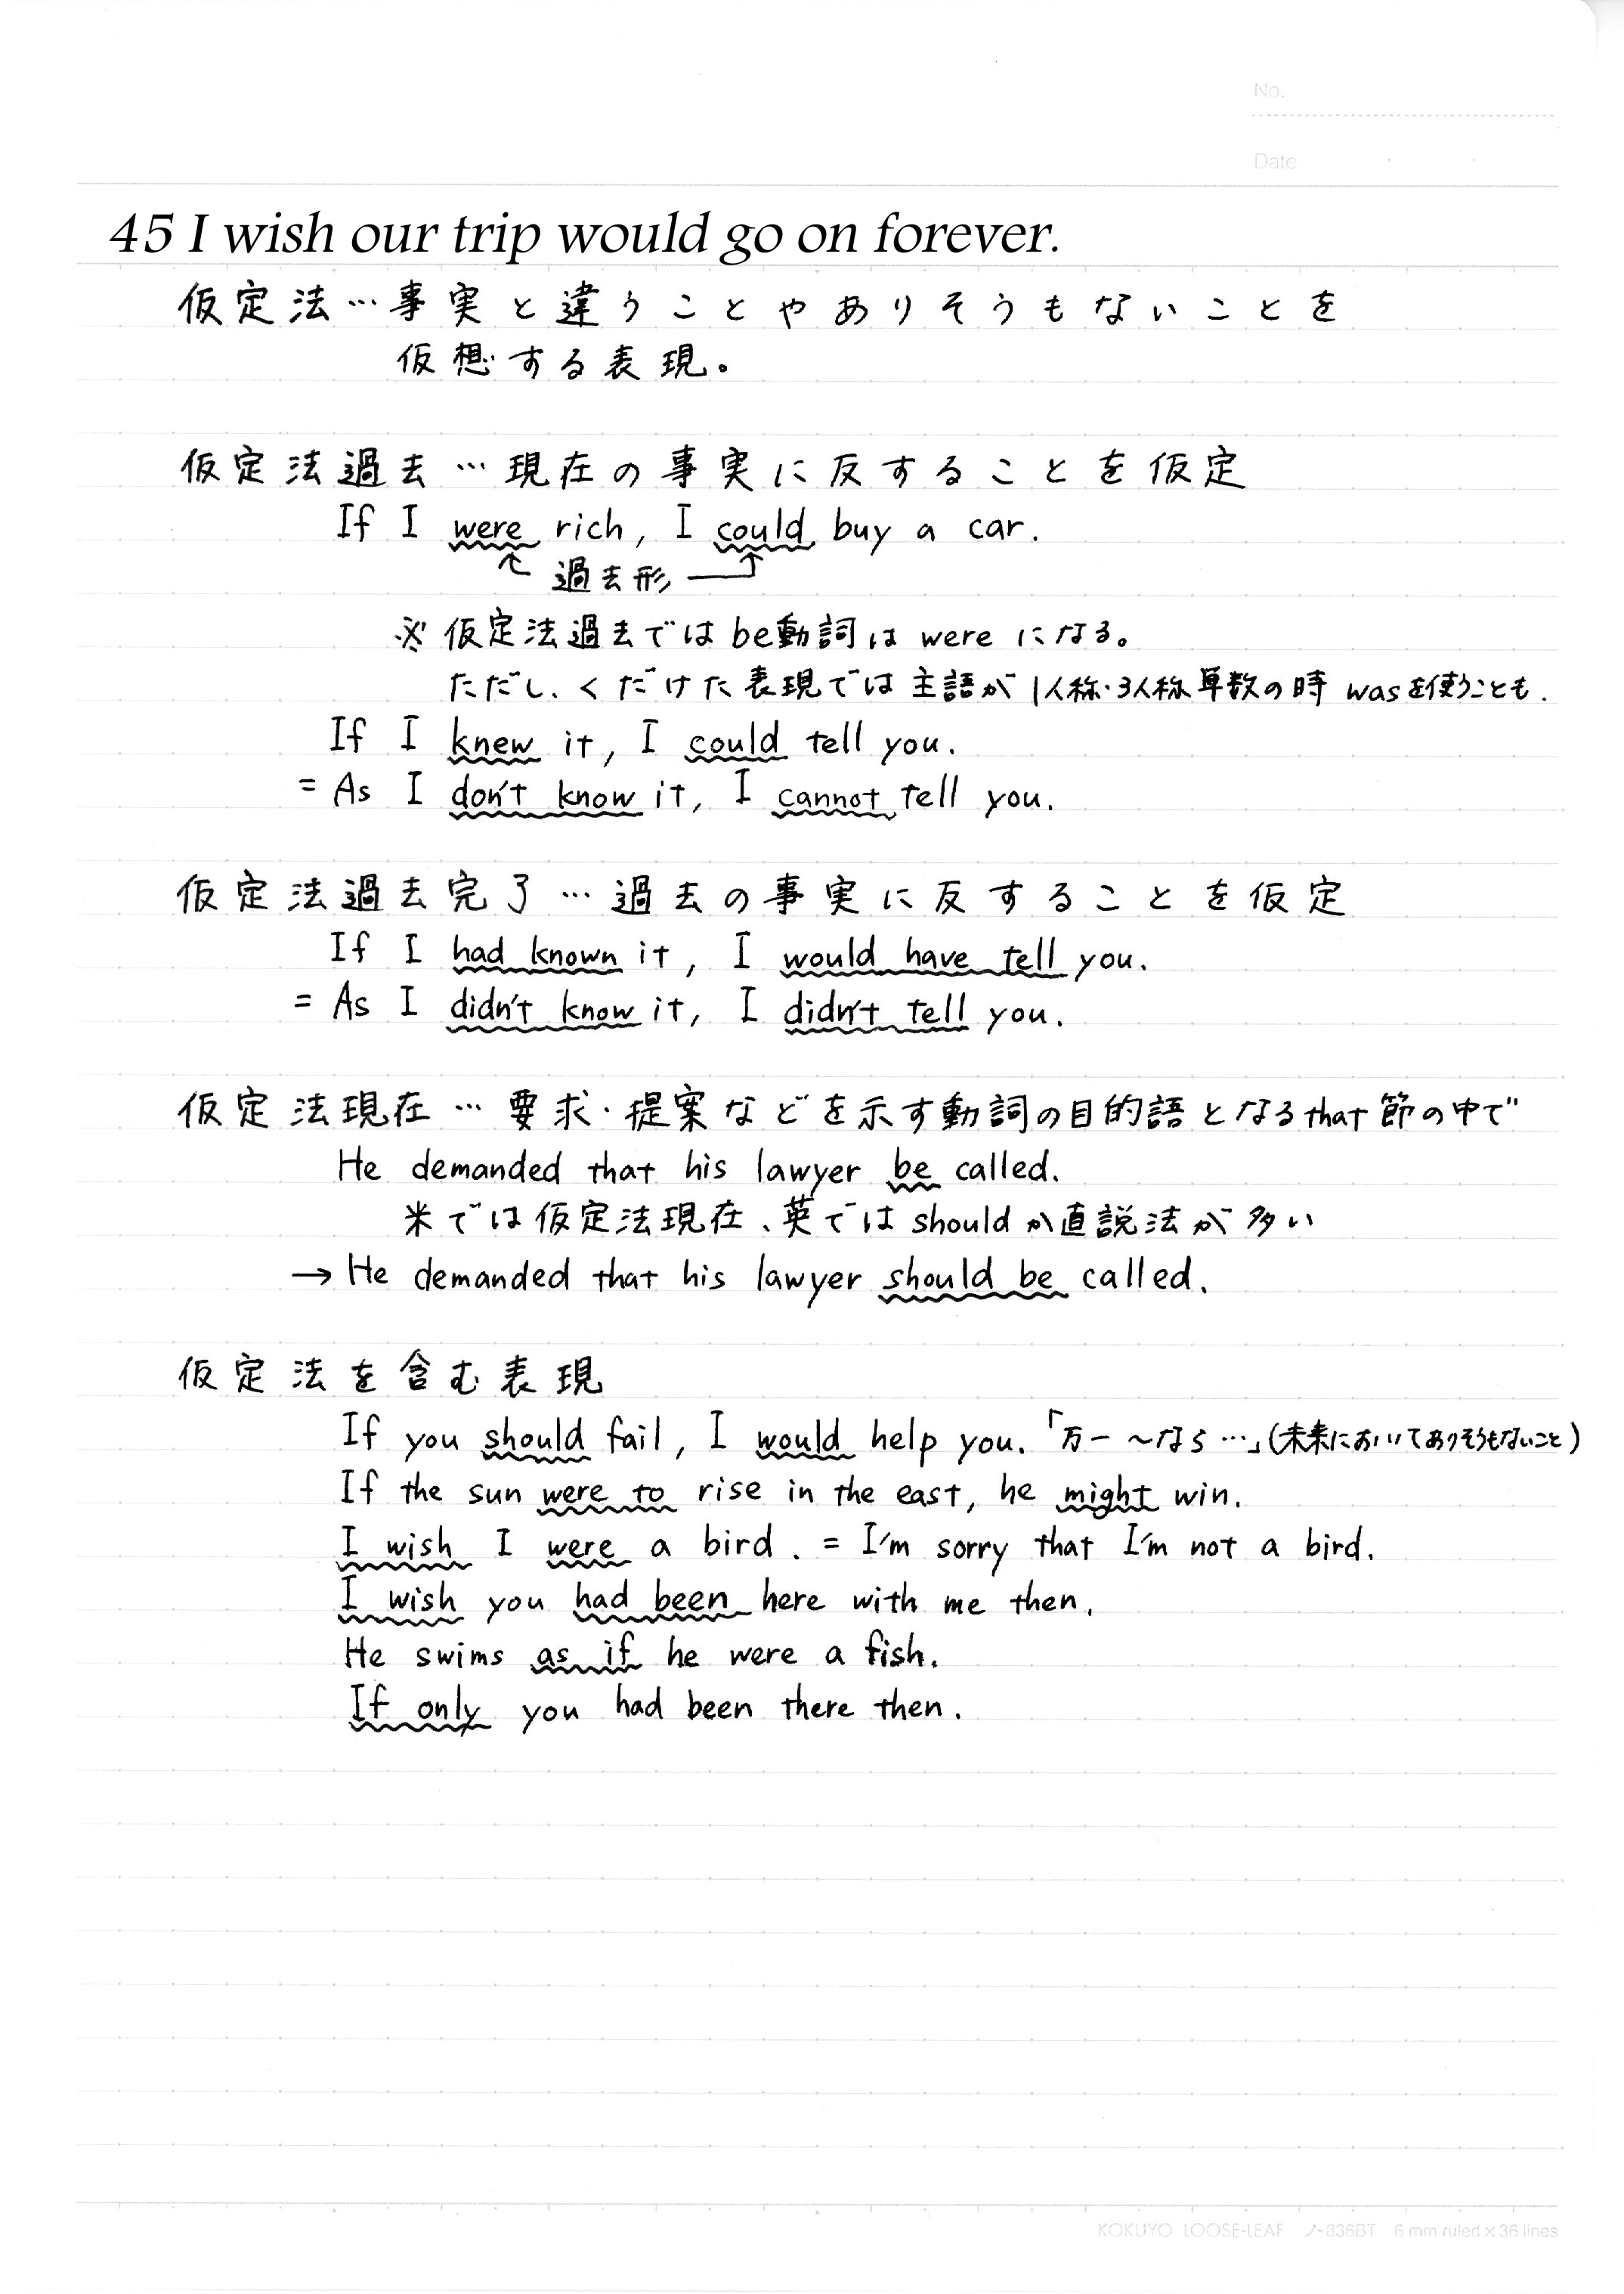 No.
Date
45 I wish our trip would go on forever.
仮定法…事実と違うことやありそうもないことを
仮想する表現。
仮定法過去…現在の事実に反することを仮定
If I were rich, I could buy a car.
過去形
※仮定法過去ではbe動詞は were になる。
ただし、くだけた表現では主語が1人称・3人称単数の時 wasを使うことも.
If I knew it, I could tell you.
= As I don't know it, I cannot tell you.
仮定法過去完了…過去の事実に反することを仮定
If I had known it, I would have tell you.
= As I didn't know it, I didn't tell you.
仮定法現在…要求・提案などを示す動詞の目的語となるthat節の中で
He demanded that his lawyer be called.
米では仮定法現在、英では should か直説法が多い
→ He demanded that his lawyer should be called.
仮定法を含む表現
If you should fail, I would help you.「万一~なら…」(未来においてありそうもないこと)
If the sun were to rise in the east, he might win.
I wish I were a bird. = I'm sorry that I'm not a bird.
I wish you had been here with me then.
He swims as if he were a fish.
If only you had been there then.
KOKUYO LOOSE-LEAF ノ-836BT 6 mm ruled×36 lines